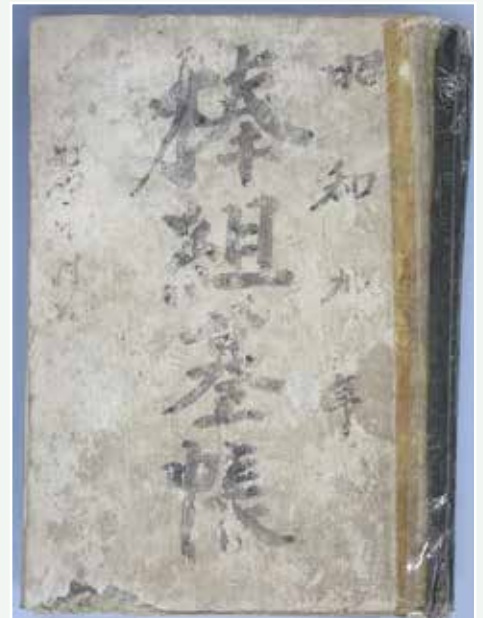 昭和九年
棒組臺帳